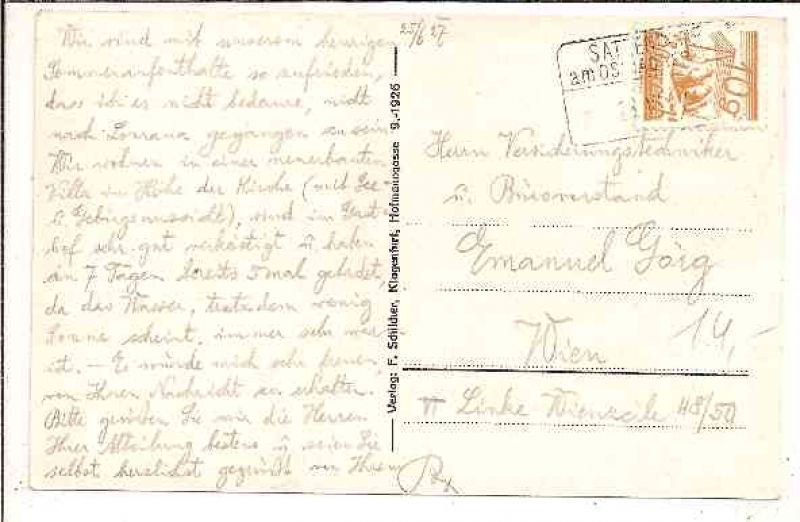 25/6 27
Wir sind mit unserem heurigen
Sommeraufenthalte so zufrieden,
dass ich es nicht bedaure, nicht
nach Lovrana gegangen zu sein
Wir wohnen in einer neuerbauten
Villa in Höhe der Kirche (mit See-
u. Gebirgsaussicht), sind im Gast-
hof sehr gut verköstigt u. haben
in 7 Tagen bereits 5 mal gebadet,
da das Wasser, trotzdem wenig
Sonne scheint, immer sehr warm
ist. – Es würde mich sehr freuen,
von Ihnen Nachricht zu erhalten.
Bitte grüssen Sie mir die Herren
Ihrer Abteilung bestens u. seien Sie
selbst herzlichst gegrüsst von Ihrem
Verlag: F. Schilcher, Klagenfurt, Hofmanngasse 9.-1926
SAT
am OS
60
Herrn Versicherungstechniker
u. Bürovorstand
Emanuel Görg
14,-
Wien
Linke Wienzeile 48/50